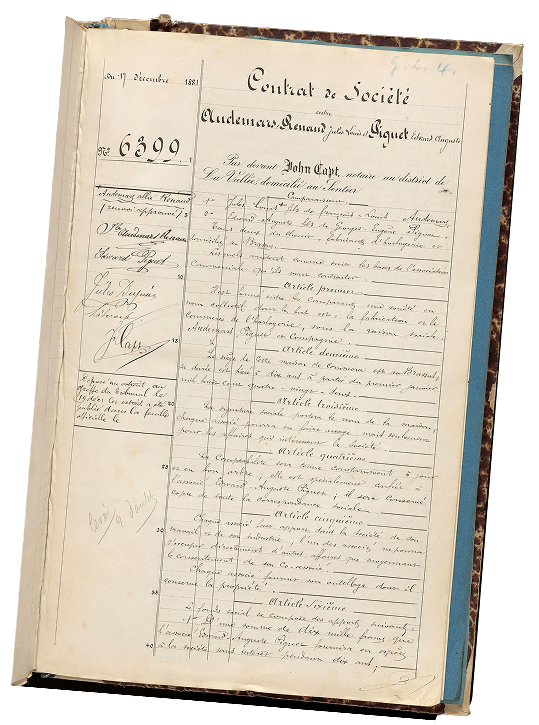 G. L. 4.
Du 17 décembre 1881
Contrat de Société
entre
Audemars-Renaud Jules Louis et Piguet Edward Auguste
No 6399.
Par devant John Capt, notaire au district de
La Vallée, domicilié au Sentier
Comparaissent
1o Jules Louis fils de François Louis Audemars,
2o Edward Auguste fils de Piguet
tous deux du Chenit, fabricants d'horlogerie et
domiciliés au Brassus,
Lesquels sont convenu sur les bases de l'association
commerciale qu'ils vont contracter.
Article premier
Il est formé entre les comparants une société en
nom collectif dont le but est la fabrication et le
commerce de l'horlogerie, sous la raison sociale
Audemars Piguet et Compagnie.
Article deuxième
Le siège de cette maison de commerce est au Brassus,
la durée est fixée à dix ans à partir du premier janvier
mil huit cent quatre-vingt-deux.
Article troisième
La signature sociale portera le nom de la maison,
chaque associé pourra en faire usage, mais seulement
pour les affaires qui intéressent la société.
Article quatrième
La comptabilité sera tenue constamment à jour
et en bon ordre, elle est spécialement confiée à
l'associé Edward-Auguste Piguet; il sera conservé
copie de toute la correspondance sociale.
Article cinquième
Chaque associé fait apport dans la société de son
travail et de son industrie, l'un des associés ne pourra
s'occuper directement d'autres affaires que moyennant
le consentement de son co-associé.
Chaque associé fournit son outillage dont il
conserve la propriété.
Article sixième
Le fonds social se compose des apports suivants:
1o D'une somme de dix mille francs que
l'associé Edward-Auguste Piguet fournira en espèces
à la société sans intérêt pendant dix ans;
Audemars allié Renaud
Ls Audemars Renaud
Edward Piguet
Jules Dupuis
J Capt
Déposé un extrait au
greffe du tribunal le
19 déc. Cet extrait a été
publié dans la feuille
officielle le
1
5
10
15
20
30
35
40